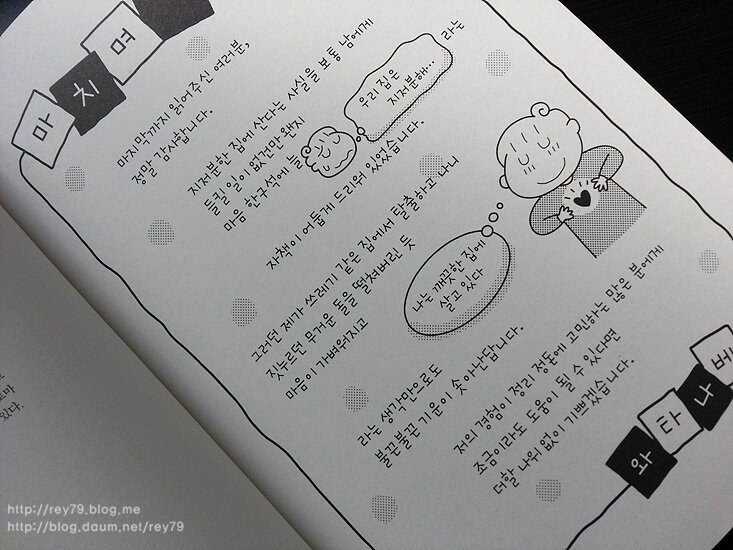 마치며
마지막까지 읽어주신 여러분,
정말 감사합니다.
지저분한 집에 산다는 사실을 보통 남에게
들킬 일이 없건만 왠지
마음 한구석에 늘
우리 집은
지저분해...
라는
자책이 어둡게 드리워 있었습니다.
그러던 제가 쓰레기 같은 집에서 탈출하고 나니
짓누르던 무거운 돌을 떨쳐버린 듯
마음이 가벼워지고
나는 깨끗한 집에
살고 있다
라는 생각만으로도
불끈불끈 기운이 솟아난답니다.
저의 경험이 정리 정돈에 고민하는 많은 분에게
조금이라도 도움이 될 수 있다면
더할 나위 없이 기쁘겠습니다.
와타나베
있다.
http://rey79.blog.me
http://blog.daum.net/rey79